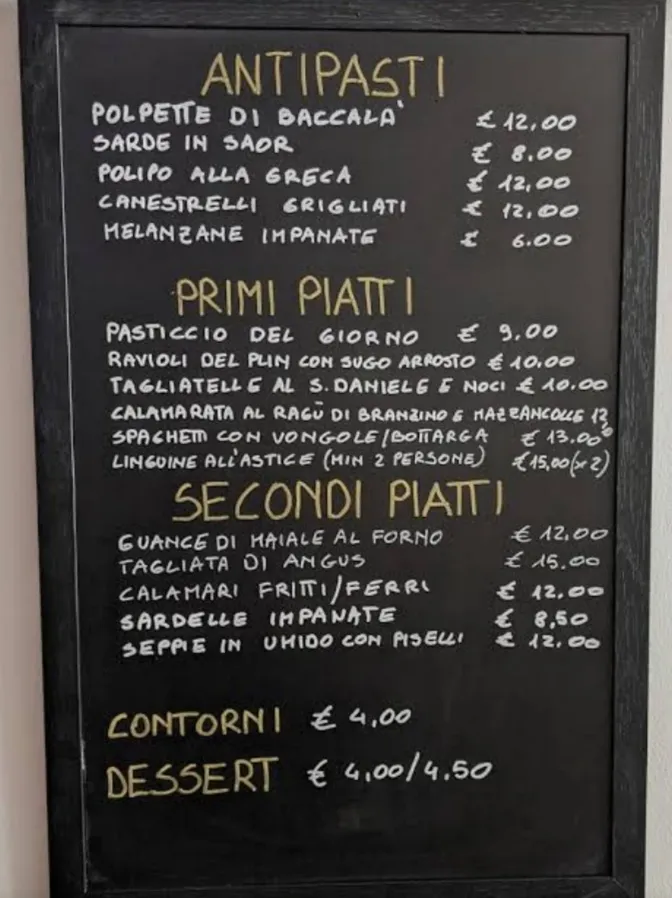 ANTIPASTI
POLPETTE DI BACCALA' € 12,00
SARDE IN SAOR € 8.00
POLIPO ALLA GRECA € 12,00
CANESTRELLI GRIGLIATI € 12,00
MELANZANE IMPANATE € 6.00
PRIMI PIATTI
PASTICCIO DEL GIORNO € 9,00
RAVIOLI DEL PLIN CON SUGO ARROSTO € 10.00
TAGLIATELLE AL S. DANIELE E NOCI € 10.00
CALAMARATA AL RAGÙ DI BRANZINO E MAZZANCOLLE 12,00
SPAGHETTI CON VONGOLE/BOTTARGA € 13.00
LINGUINE ALL'ASTICE (MIN 2 PERSONE) € 15,00 (x2)
SECONDI PIATTI
GUANCE DI MAIALE AL FORNO € 12.00
TAGLIATA DI ANGUS € 15.00
CALAMARI FRITTI/FERRI € 12.00
SARDELLE IMPANATE € 8,50
SEPPIE IN UMIDO CON PISELLI € 12.00
CONTORNI € 4,00
DESSERT € 4,00/4.50